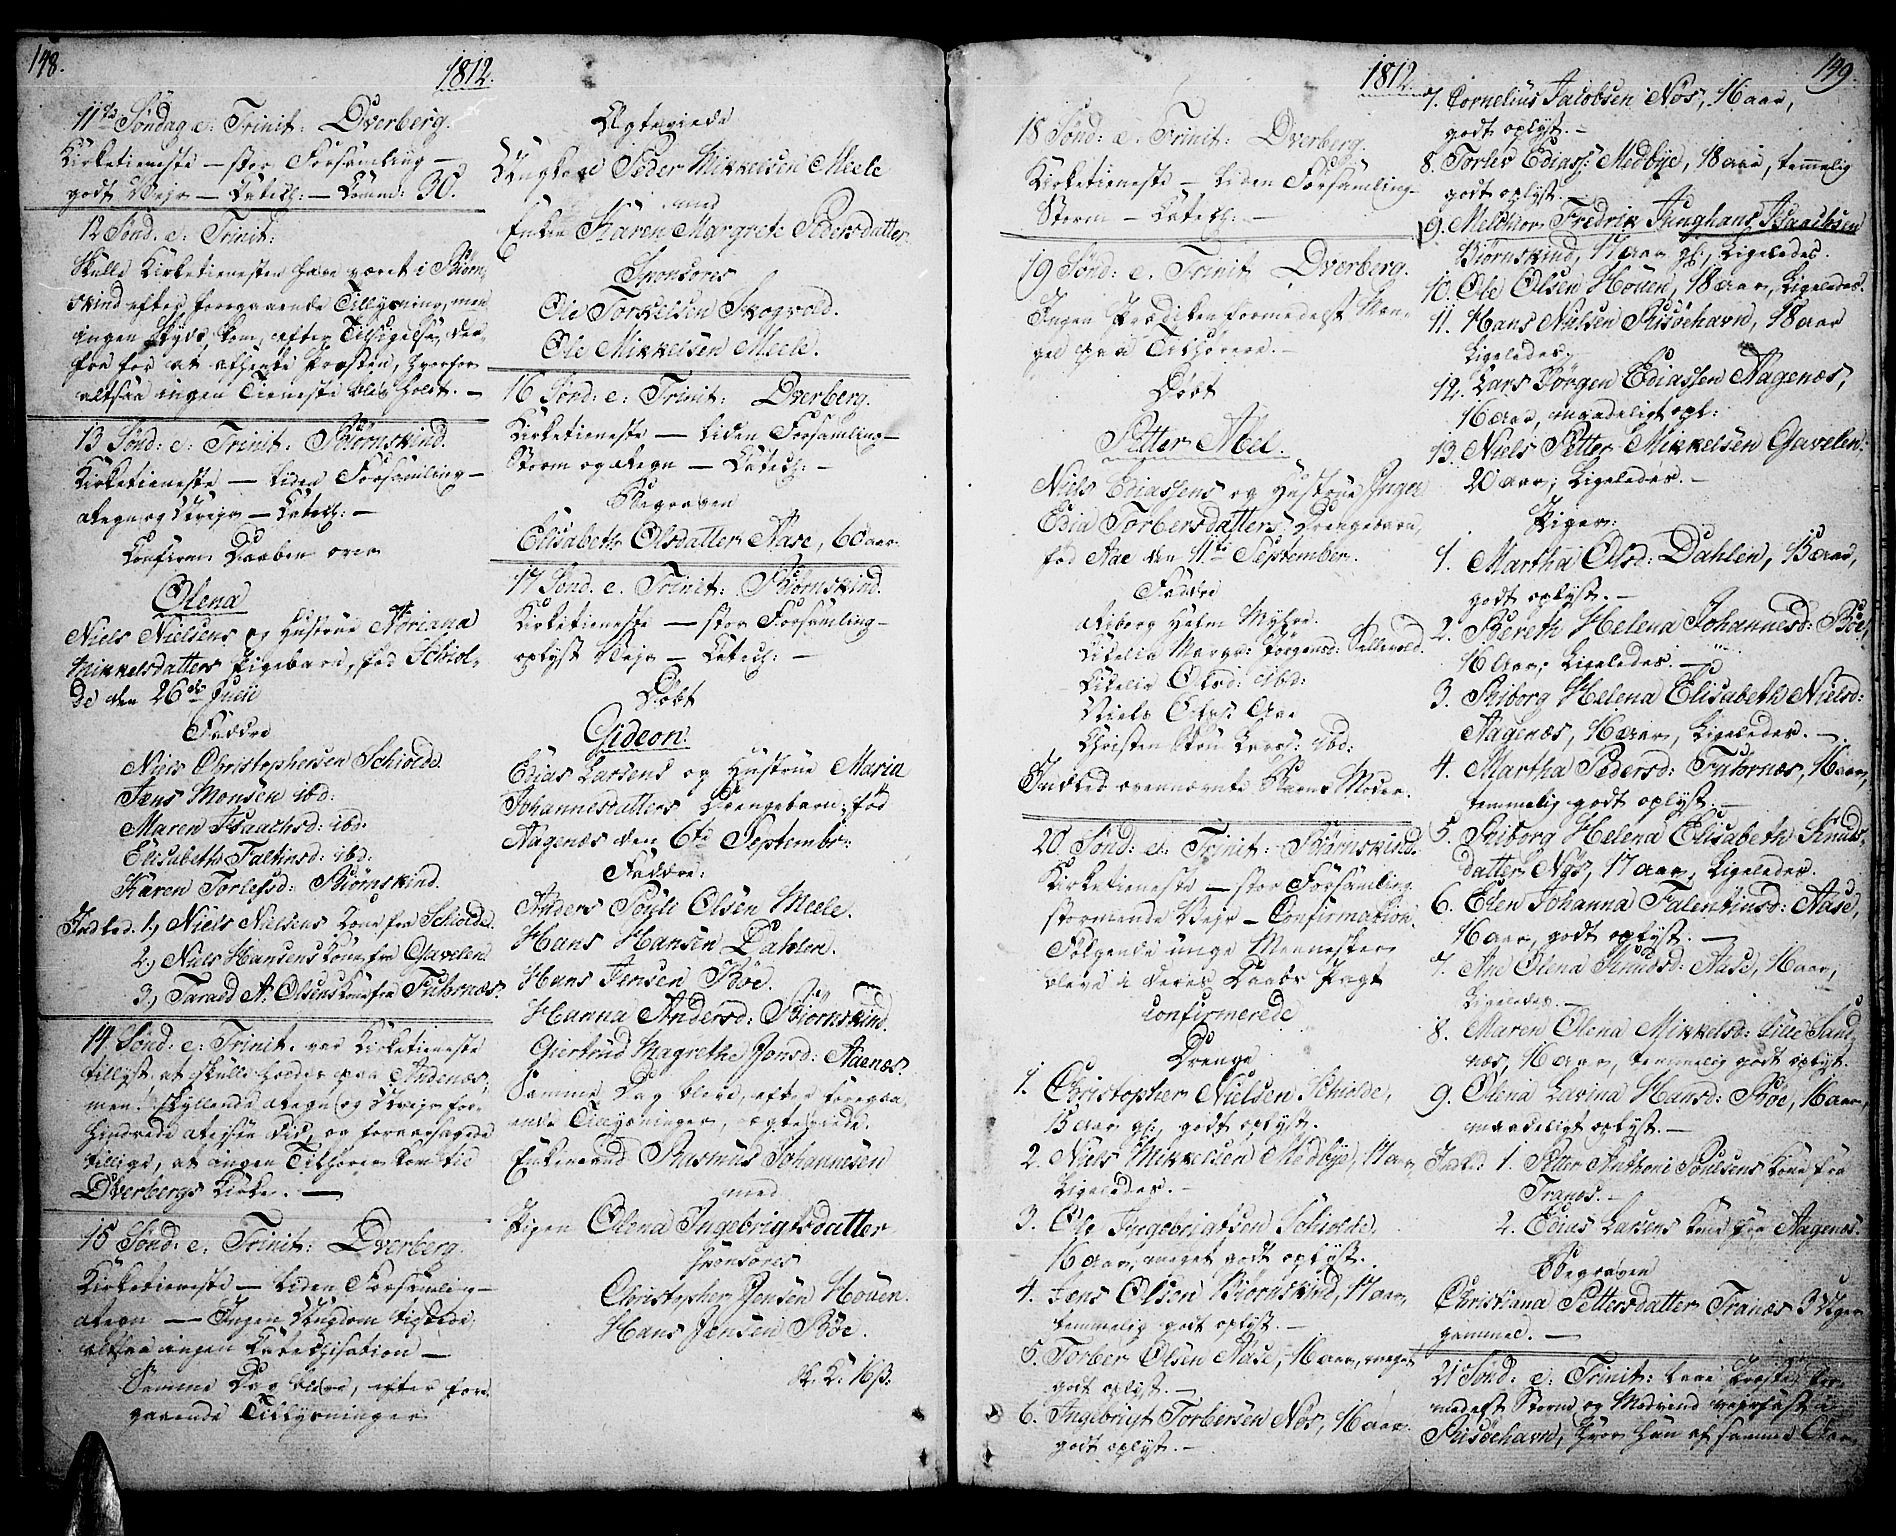 148.
1812.
11te Søndag e: Trinit: Dverberg.
Kirketieneste — stor Forsamling —
godt Veir — Catech: — Comm: 30.
12 Sønd: e: Trinit:
Skulle Kirketienesten have været i Biørn-
skind efter foregaaende Tillysning, men
ingen Skyds kom, efter Tilsigelse, der-
fra for at afhente Præsten, hvorfor
altsaa ingen Tieneste blev holdt. —
13 Sønd: e: Trinit: Biørnskind.
Kirketieneste — liden Forsamling —
Regn og Veir — Catech: —
Confirm: Daaben over
Olena
Niels Nielsens og Hustrue Noriana
Mikkelsdatters Pigebarn, fød Schiol-
de den 26de Juli
Faddre
Niels Christophersen Schiolde
Jens Monsen ibd:
Maren Isaachsd: ibd:
Elisabeth Faltinsd: ibd:
Karen Torlefsd: Biørnskind.
Indled. 1, Niels Nielsens Kone fra Schiolde.
2, Niels Hansens Kone fra Gavelen
3, Tarald A: Olsens Kone fra Fiskenæs.
14 Sønd: e: Trinit: var Kirketieneste
tillyst at skulle holdes paa Andenæs,
men skyllende Regn og Veir for-
hindrede Reisen did, og foraarsagede
tillige, at ingen Tilhører kom til
Dverbergs Kirke. —
15 Sønd: e: Trinit: Dverberg.
Kirketieneste — liden Forsamling —
Regn — Ingen Ungdom tilstede,
altsaa ingen Catechisation —
Samme Dag bleve, efter fore-
gaaende Tillysninger
Ægteviede
Ungkarl Peder Mikkelsen Meele
med
Enken Karen Margrete Pedersdatter
Sponsores
Ole Torkelsen Skogvold.
Ole Mikkelsen Meele.
16 Sønd: e: Trinit: Dverberg.
Kirketieneste — liden Forsamling —
Storm og Regn — Catech: —
Begraven
Elisabeth Olsdatter Aase, 60 aar.
17 Sønd: e: Trinit: Biørnskind.
Kirketieneste — stor Forsamling —
oplyst Veir — Catech: —
Døbt
Gideon.
Edias Larsens og Hustrue Maria
Johannesdatters Drengebarn, fød
Aagenæs den 6te Septembr:
Faddre:
Anders Pouli Olsen Meele.
Hans Hansen Dahlen.
Hans Jensen Bøe.
Hanna Andersd: Biørnskind.
Giertrud Magrethe Jonsd: Aaenæs.
Samme Dag bleve, efter foregaa-
ende Tillysninger, ægteviede.
Enkemand Rasmus Johannesen
med
Pigen Olena Ingebrigtsdatter
Sponsores
Christopher Jensen Houen.
Hans Jensen Bøe.
1812
149.
18 Sønd: e: Trinit: Dverberg.
Kirketieneste — liden Forsamling —
Storm — Catech: —
19 Sønd: e: Trinit Dverberg.
Ingen Prædiken formedelst Man-
gel paa Tilhørere. —
Døbt
Petter Abel.
Niels Ediassens og Hustrue Inger
Edia Torbersdatters Drengebarn,
fød Aae den 11te September.
Faddre
Riborg Holm Myhre.
Kitella Margr: Jørgensd: Sellevold.
Kitelia Olsd: ibd:
Niels Olss: Aae
Christen Skou Larss: ibd:
Indled ovennævnte Barns Moder.
20 Sønd: e: Trinit: Biørnskind.
Kirketieneste — stor Forsamling
stormende Veir — Confirmation.
Følgende unge Mennesker
bleve i deres Daabs Pagt
confirmerede
Drenge
1. Christopher Nielsen Schiolde,
15 aar gl:, godt oplyst.
2. Niels Mikkelsen Medbye, 17 aar,
Ligeledes. —
3. Ole Ingebrigtsen Schiolde,
16 aar, meget godt oplyst.
4. Jens Olsen Biørnskind, 17 aar,
temmelig godt oplyst. —
5. Torber Olsen Aase, 16 aar, meget
godt oplyst. —
6. Ingebrigt Torbersen Nøs, 16 aar.
godt oplyst. —
7. Cornelius Jacobsen Nøs, 16 aar,
godt oplyst. —
8. Torlev Ediass: Medbye, 18 aar, temmelig
godt oplyst. —
9. Melchior Fredrik Junghans Isaachsen
Biørnskind, 17 aar gl:, Ligeledes.
10. Ole Olsen Houen, 18 aar, Ligeledes.
11. Hans Nielsen Risøehavn, 18 aar
Ligeledes.
12. Lars Jørgen Ediassen Aagenæs,
16 aar, maadeligt opl:
13. Niels Petter Mikkelsen Gavelen:
20 aar, Ligeledes. —
Piger:
1. Martha Olsd: Dahlen, 15 aar,
godt oplyst. —
2. Bereth Helena Johannesd: Bøe,
16 Aar, Ligeledes. —
3. Riborg Helena Elisabeth Nielsd:
Aagenæs, 16 aar, Ligeledes. —
4. Martha Pedersd: Fiskenæs, 16 aar,
temmelig godt oplyst. —
5. Riborg Helena Elisabeth Knuds-
datter Nøs, 17 aar, Ligeledes.
6. Elen Johanna Falentinsd: Aase,
16 aar, godt oplyst. —
7. Ane Olena Knudsd: Aase, 16 aar,
Ligeledes. —
8. Maren Olena Mikkelsd: Lille Sand-
næs, 16 aar, temmelig godt oplyst.
9. Olena Lavina Hansd: Bøe, 16 aar,
maadeligt oplyst. —
Indled: 1. Petter Anthoni Poulsens Kone fra
Tranes. —
2. Edias Larsens Kone fra Aagenæs.
Begraven
Christiana Pettersdatter Tranæs 3 Uger
gammel. —
21 Sønd: e: Trinit: laae Præsten for-
medelst Storm og Modvind veirfast i
Risøehavn, hvor han af samme Aar-